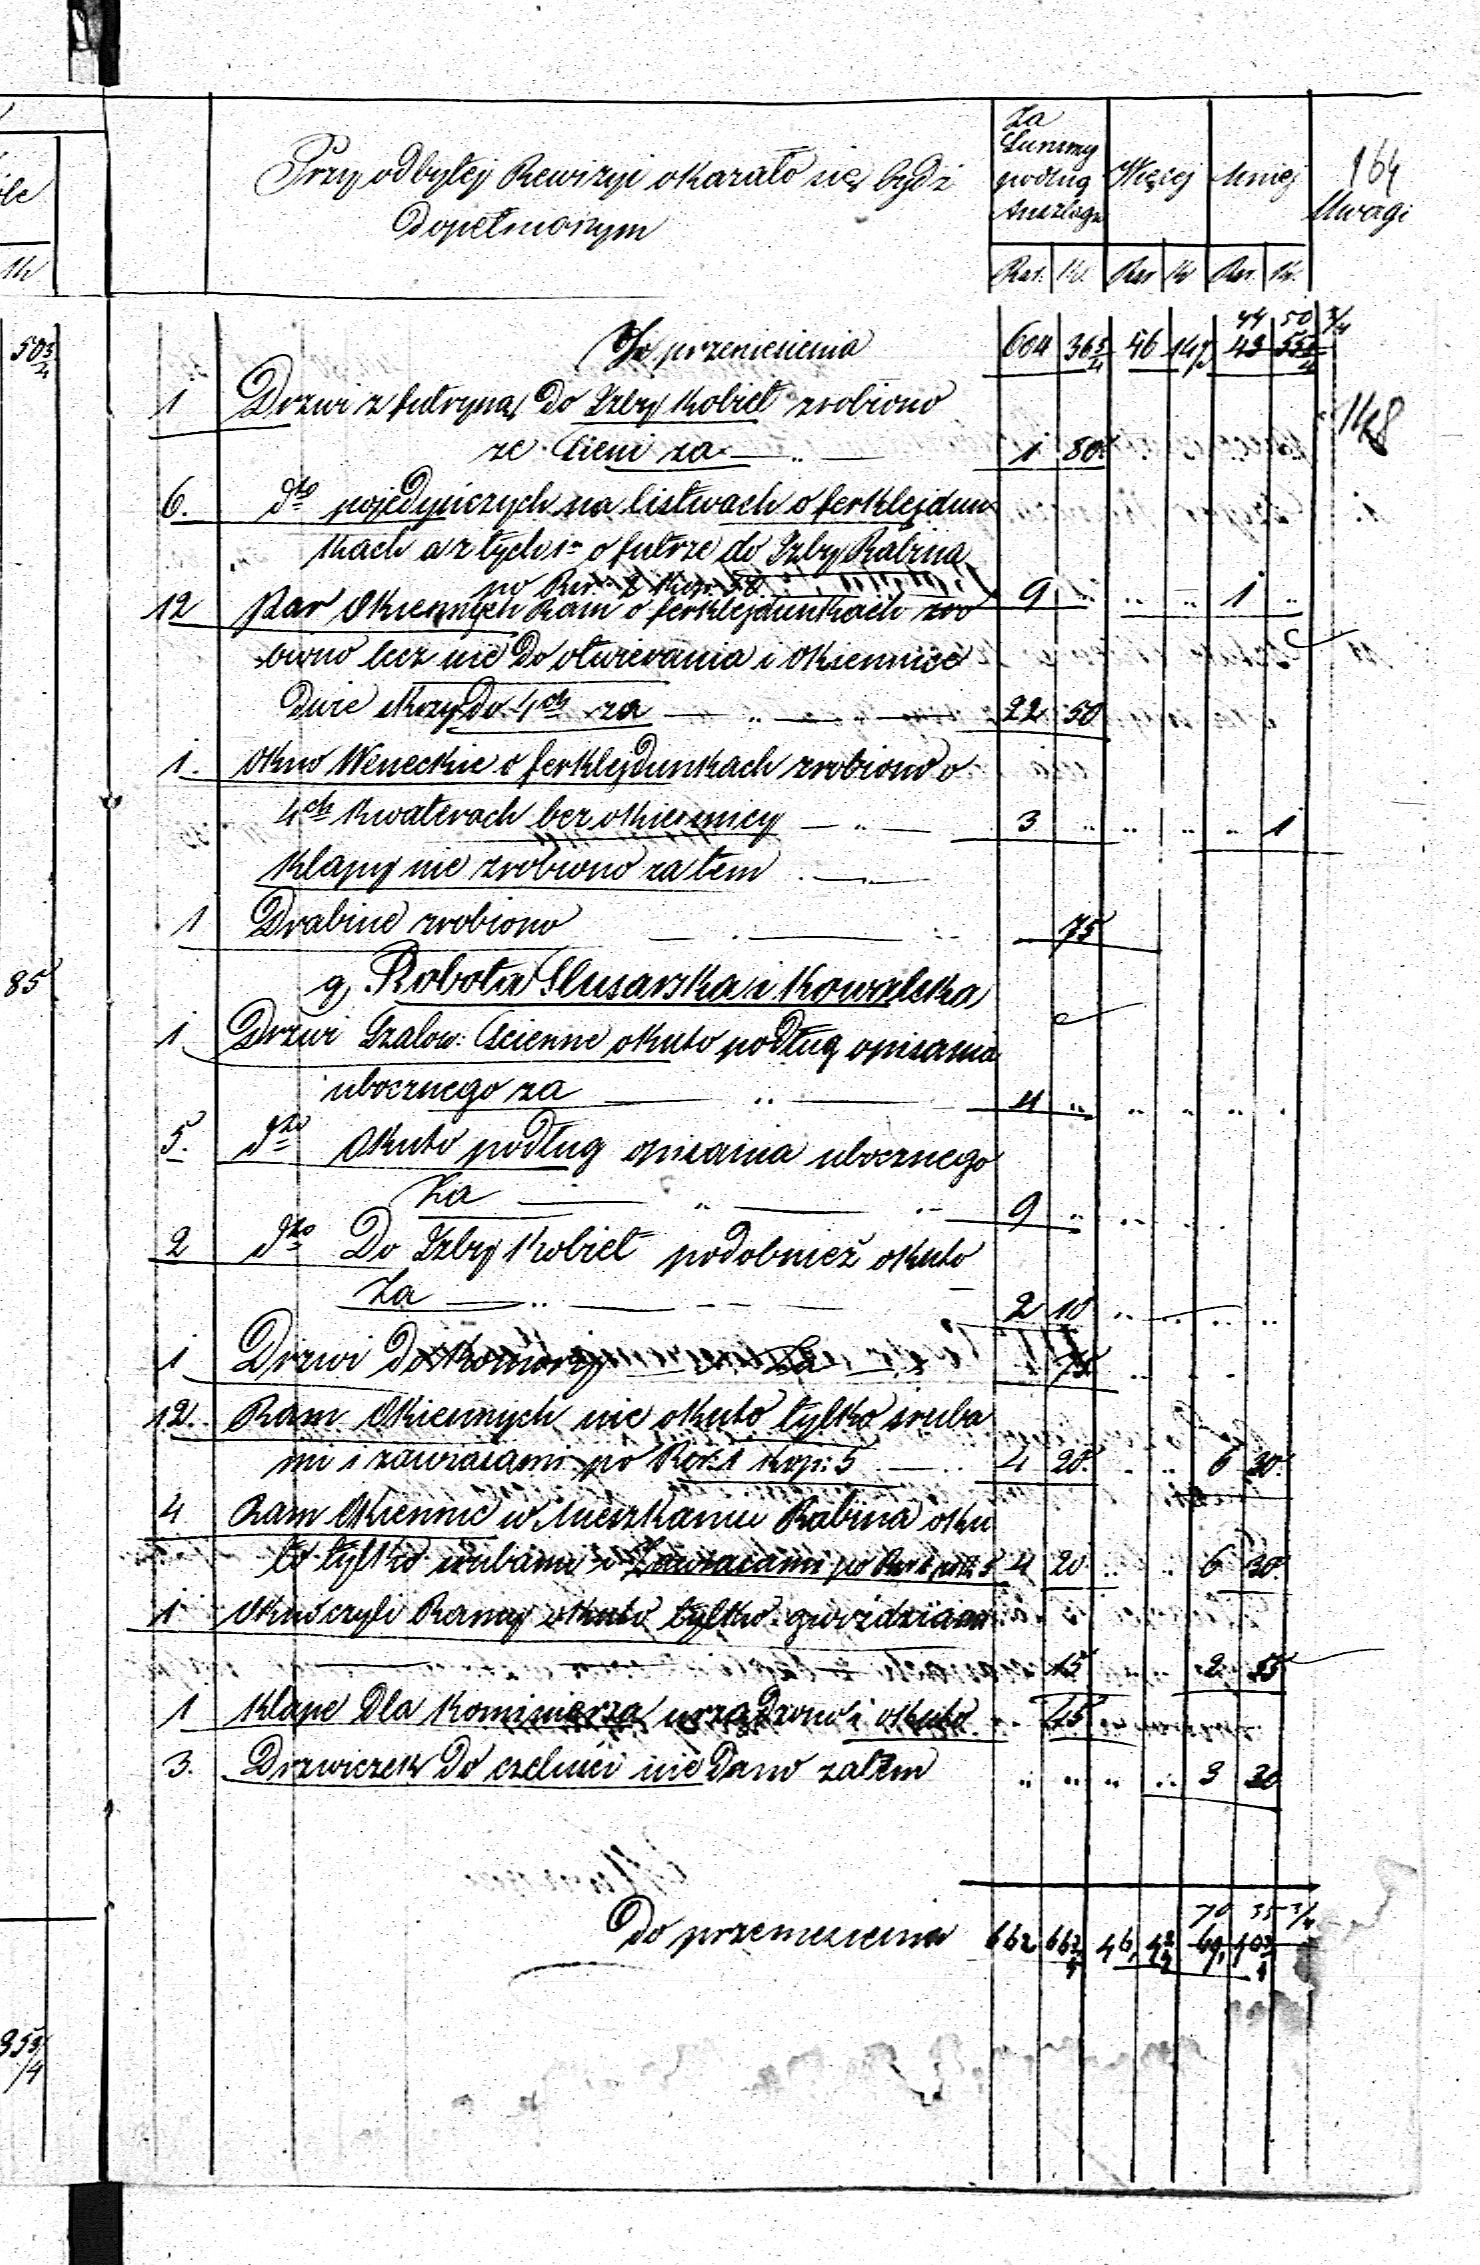 164
Przy odbytej Rewizyi okazało się bydź
dopełnionym
Za Summy podług Anszlagu
Więcej
Mniej
Uwagi
Rsr. K. Rsr K Rsr. K.
Z przeniesienia 604 36 3/4 46 44 50 3/4
148
1 Drzwi z futryną do Izby Kobiet zrobiono
ze Sieni za — „ — 1 80
6. dto pojedyńczych na listwach o ferklejdun
kach a z tych 1 o futrze do Izby Rabina
po Rsr. 9 „ „ „ 1 „
12 par Okiennych Ram o ferklejdunkach zro
biono lecz nie do otwierania i okiennice
dwie do za — „ — „ — 22 50
1. Okno Weneckie o ferklejdunkach zrobiono o
4ch Kwaterach bez okiennicy — „ — 3 „ „ „ „ 1
Klapy nie zrobiono zatem
1 Drabine zrobiono — 75
g, Robota Slusarska i Kowalska
1 Drzwi Szalow: Scienne okuto podług opisania
ubocznego za — „ — 4 „ „ „ „
5. dto Okuto podług opisania ubocznego
Za — „ — 9 „ „
2 dto Do Izby Kobiet podobnież okuto
Za — „ — 2 10 „ „ „ „
1 Drzwi do Komory Za 75
12. Ram Okiennych nie okuto tylko śruba
mi i zawiasami po Rsr: 1 kop: 5 — 4 20. 6 30.
4 Ram Okiennic w Mieszkaniu Rabina oku
to tylko śrubami i Zawiasami po 4 20 6 30.
1 Okno czyli Ramy okuto tylko gwoździami
15 2 55
1 Klape dla Kominiarza urządzono i okuto 45
3. Drzwiczek do czeluści nie dano zatem „ „ „ „ 3 30
70 35 3/4
Do przeniesienia 662 66 3/4 46,
50 3/4
85
95 3/4